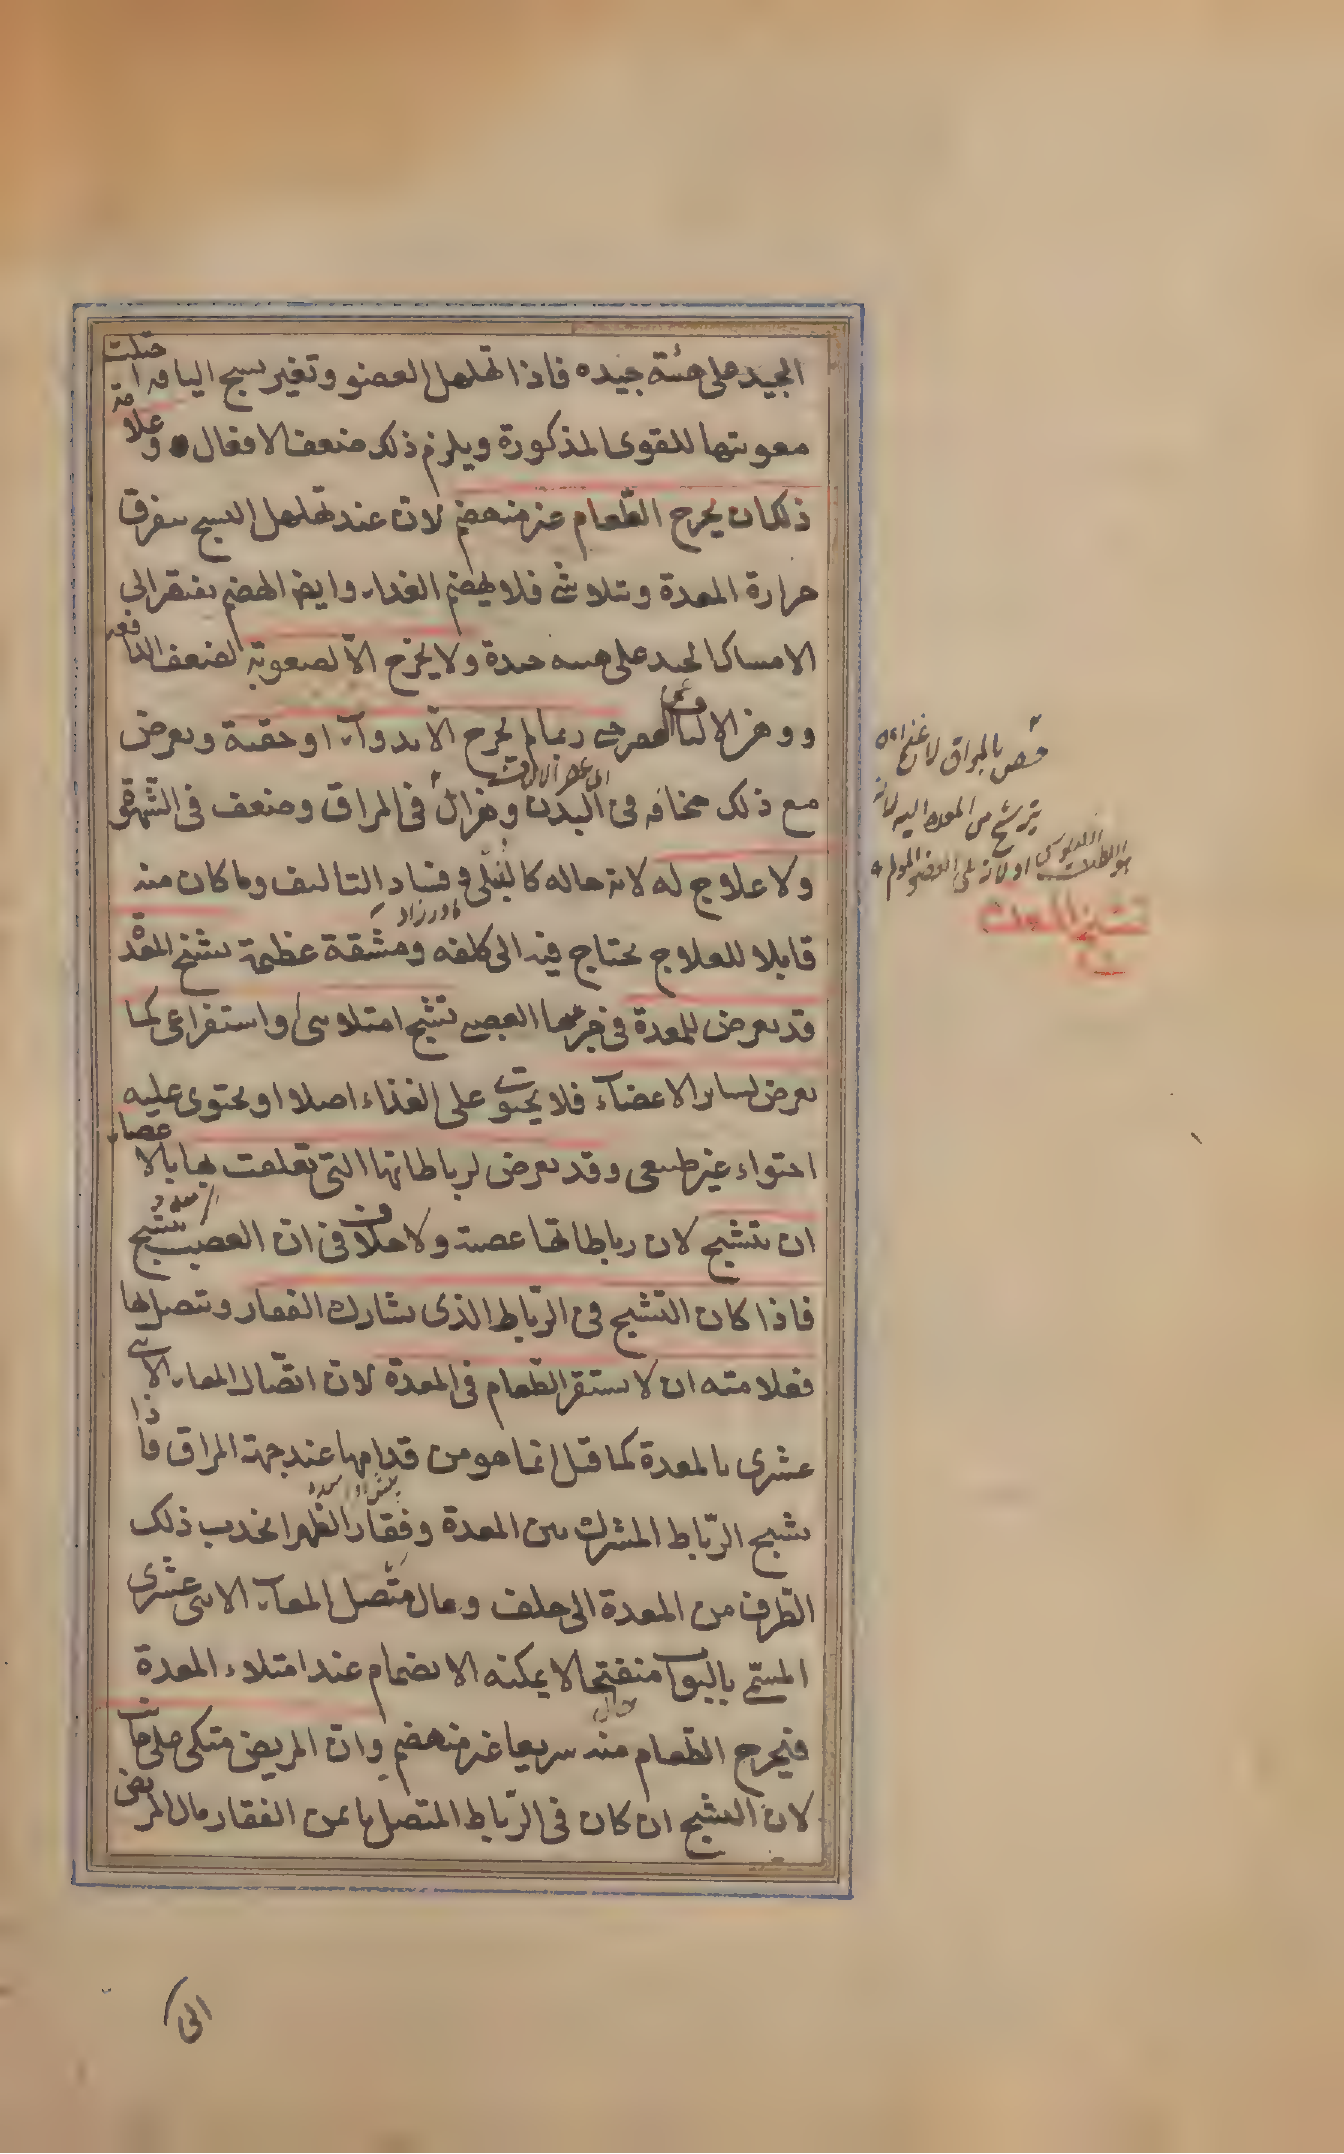 الجيد على هيئة جيده فاذا تهلهل العضو وتغير نسج اليافه اختلت
معونتها للقوى المذكورة ويلزم ذلك ضعف الافعال وعلامة
ذلك ان يخرج الطعام غير منهضم لان عند تهلهل النسج يتفرق
حرارة المعدة ويتلاشى فلا يهضم الغداء وايضا الهضم يفتقر الى
الامساك الجيد على هيئة جيدة ولا يخرج الا لصعوبة لضعف الدافعة
ووهن الالياف العرضى ربما لم يخرج الا بدواء او حقنة ويعرض
مع ذلك مخافه فى البدن وهزال فى المراق وضعف فى الشهوة
ولا علاج له لانه حاله كالبلى وفساد التاليف وما كان منه
قابلا للعلاج يحتاج فيه الى كلفه ومشقة عظيمة تشنج المعدة
قد يعرض للمعدة فى جرمها العصبى تشنج امتلائى واستفراغى كما
يعرض لساير الاعضاء فلا يحتوى على الغذاء اصلا او يحتوى عليه
احتواء غير طبيعى وقد يعرض لرباطاتها التى تعلقت بها بالاعضاء
ان يتشنج لان رباطاتها عصبية ولا خلاف فى ان العصب يتشنج
فاذا كان التشنج فى الرباط الذى يشارك الفقار ويتصل بها
فعلامته ان لا يستقر الطعام فى المعدة لان اتصال المعاء الاثنى
عشرى بالمعدة كما قيل انما هو من قدامها عند جهة المراق فاذا
تشنج الرباط المشترك بين المعدة وفقار الظهر انجذب ذلك
الطرف من المعدة الى خلف ومال متصل المعاء الاثنى عشرى
المسمى بالبواب منفتحا لا يمكنه الانضمام عند امتلاء المعدة
فيخرج الطعام منه سريعا غير منهضم وان المريض متكى على جانب
لان التشنج ان كان فى الرباط المتصل بايمن الفقار مال المريض
الى
تشنج المعدة